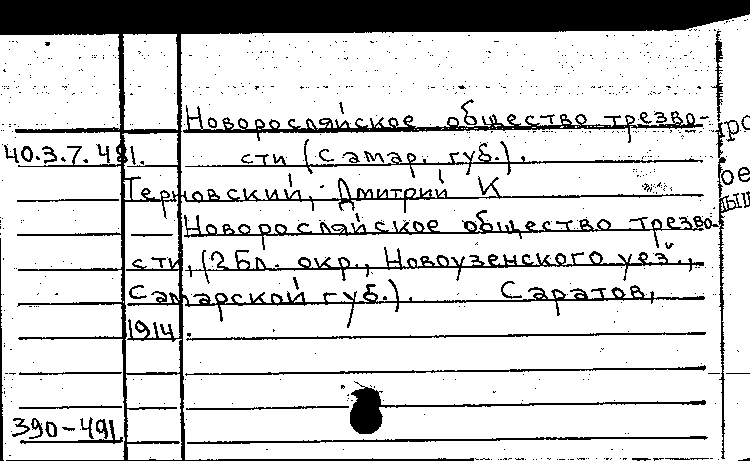 Новоросляйское общество трезво-
40.3.7.481. сти (Самар. губ.).
Терновский, Дмитрий К
Новоросляйское общество трезво-
сти, (2 Бл. окр., Новоузенского уез.,
Самарской губ.). Саратов,
1914.
390-491